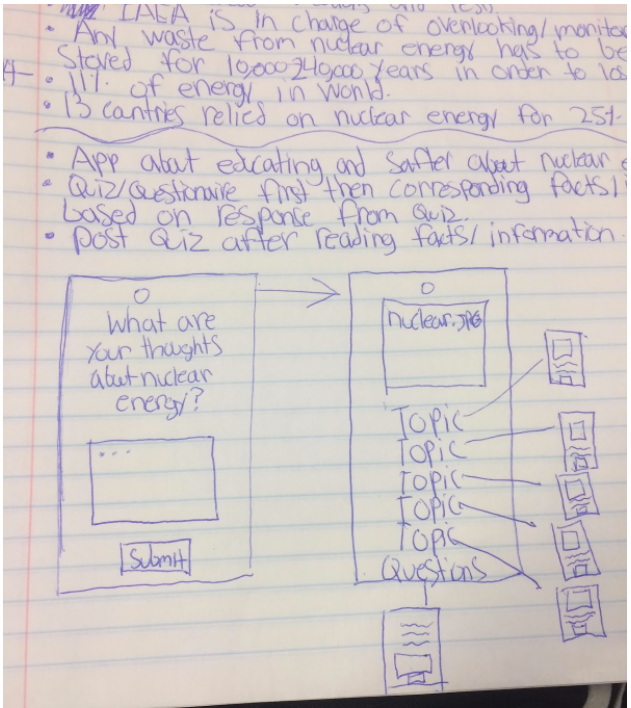 IAEA is in charge of overlooking/monitor
• Any waste from nuclear energy has to be
Stored for 10,000-240,000 years in order to los
• 11% of energy in world.
• 13 cantries relied on nuclear energy for 25%
• App about educating and safter about nuclear e
• Quiz/Questionaire first then corresponding facts/
based on response from Quiz.
• Post Quiz after reading facts/information.
What are
your thoughts
about nuclear
energy?
...
Submit
nuclear.JPG
Topic
Topic
Topic
Topic
Topic
Questions